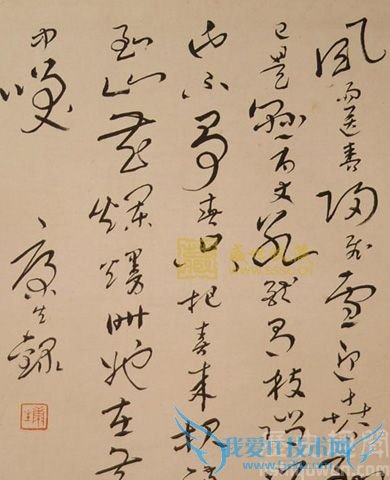 風雨送春归飞雪迎春
已是懸崖百丈冰犹有花枝俏
也不争春只把春来報
到山花爛熳時她在
中笑
康生錄
我爱IT技术网